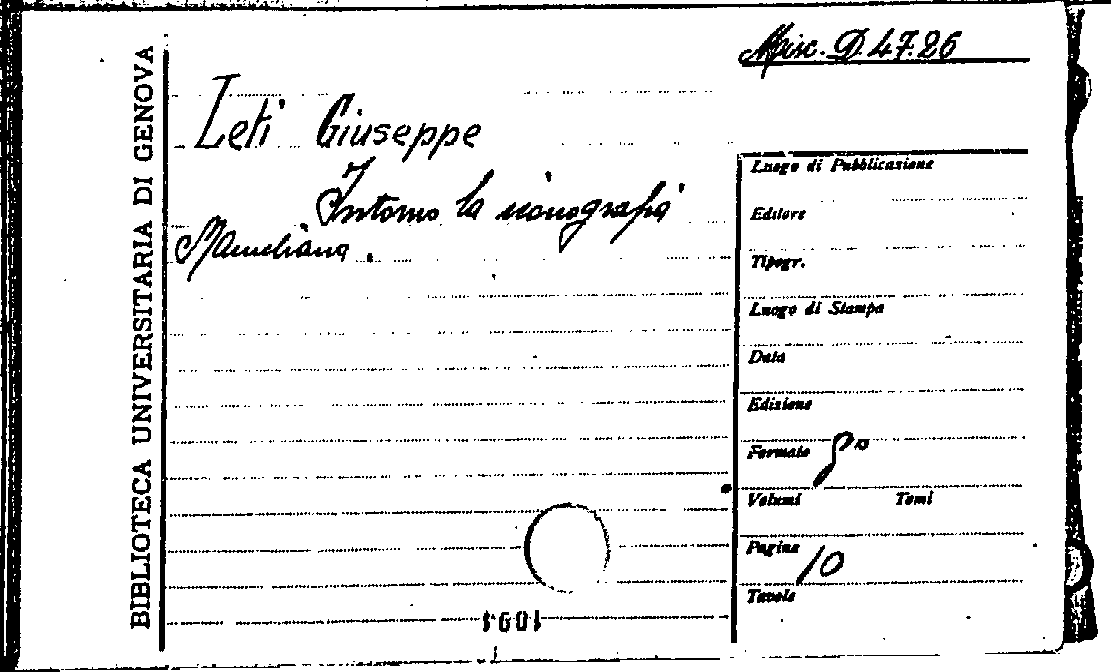 Misc. D.47.26
BIBLIOTECA UNIVERSITARIA DI GENOVA
Leti Giuseppe
Intorno la iconografia
Mameliana.
Luogo di Pubblicazione
Editore
Tipogr.
Luogo di Stampa
Data
Edizione
Formato 8°
Volumi Tomi
Pagine 10
Tavole